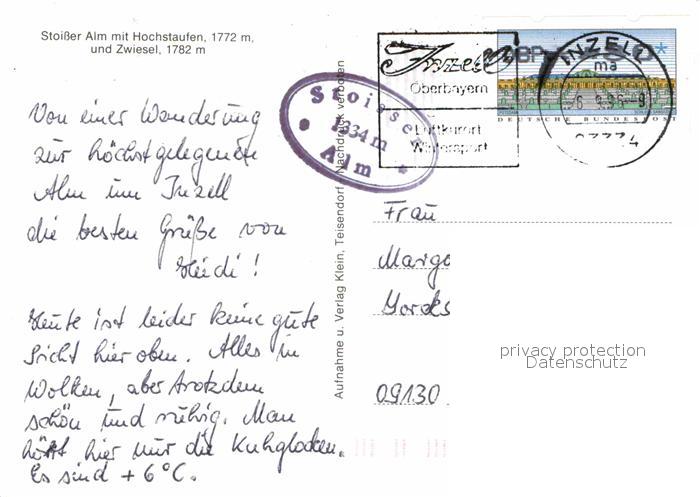 Stoißer Alm mit Hochstaufen, 1772 m,
und Zwiesel, 1782 m
Von einer Wanderung
zur höchstgelegenen
Alm um Inzell
die besten Grüße von
Heidi!
Heute ist leider keine gute
Sicht hier oben. Alles in
Wolken, aber trotzdem
schön und ruhig. Man
hört hier nur die Kuhglocken.
Es sind + 6°C.
Aufnahme u. Verlag Klein, Teisendorf, Nachdruck verboten
Stoisser
1334 m
Alm
Inzell
Oberbayern
Luftkurort
Wintersport
INZELL
ma
DBP
DEUTSCHE BUNDESPOST
Frau
Marge
09130
privacy protection
Datenschutz